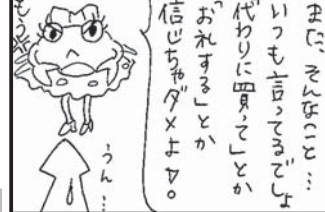 また、そんなこと…
いつも言ってるでしょ
代わりに買って」とか
「お礼する」とか
信じちゃダメよ▽。
もう
うん…